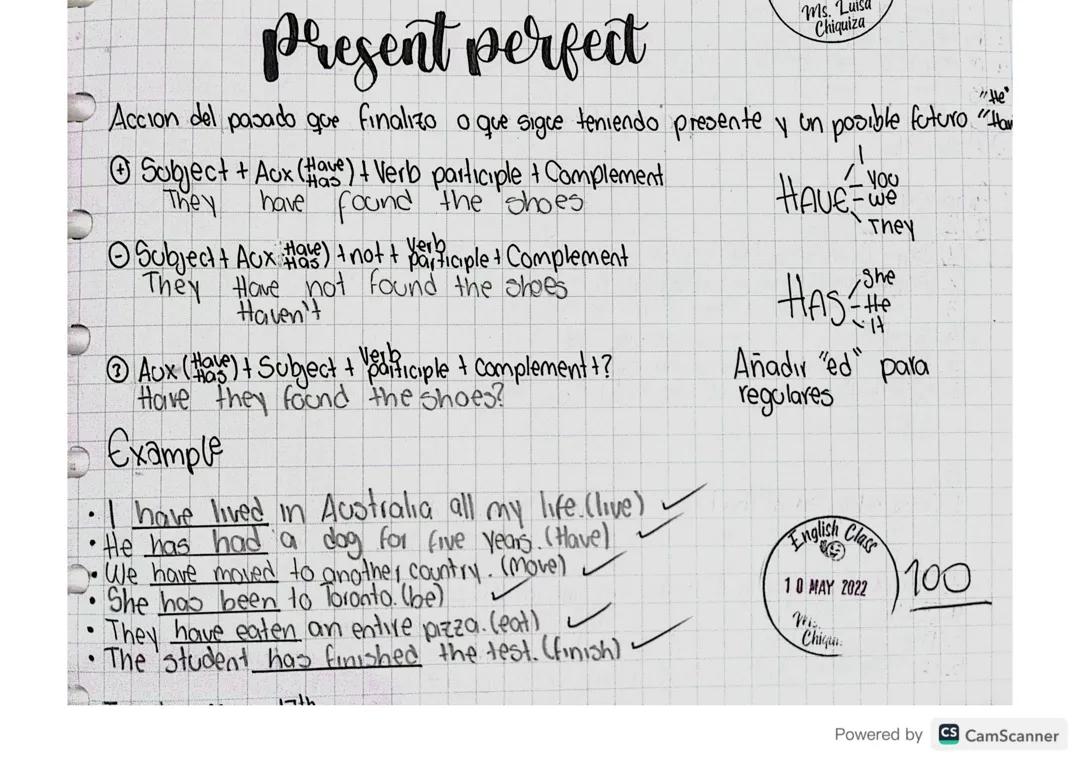 Ms. Luisa
Chiquiza
Present perfect
"He"
Accion del pasado que finalizo o que sigue teniendo presente y un posible futuro "Hav
(+) Subject + Aux (Have Has) + Verb participle + Complement
They have found the shoes
HAVE - I
you
we
They
(-) Subject + Aux Have Has) + not + Verb participle + Complement
They Have not found the shoes
Haven't
HAS - She
He
It
(?) Aux (Have Has) + Subject + Verb participle + Complement + ?
Have they found the shoes?
Añadir "ed" para
regulares
Example
• I have lived in Australia all my life. (live) ✓
• He has had a dog for five years. (Have) ✓
• We have moved to another country. (Move) ✓
• She has been to Toronto. (be) ✓
• They have eaten an entire pizza. (eat) ✓
• The student has finished the test. (finish) ✓
English Class
10 MAY 2022
Ms.
100
17th
Powered by CS CamScanner